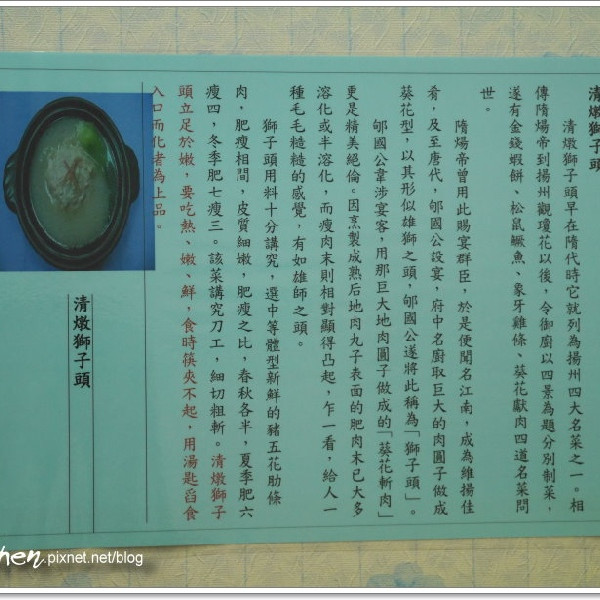 清燉獅子頭
清燉獅子頭早在隋代時它就列為揚州四大名菜之一。相
傳隋煬帝到揚州觀瓊花以後，令御廚以四景為題分別制菜，
遂有金錢蝦餅、松鼠鱖魚、象牙雞條、葵花獻肉四道名菜問
世。
隋煬帝曾用此賜宴群臣，於是便聞名江南，成為維揚佳
肴，及至唐代，郇國公設宴，府中名廚取巨大的肉圓子做成
葵花型，以其形似雄獅之頭，郇國公遂將此稱為「獅子頭」。
郇國公韋涉宴客，用那巨大地肉圓子做成的「葵花斬肉」
更是精美絕倫。因烹製成熟后地肉丸子表面的肥肉末已大多
溶化或半溶化，而瘦肉末則相對顯得凸起，乍一看，給人一
種毛毛糙糙的感覺，有如雄師之頭。
獅子頭用料十分講究，選中等體型新鮮的豬五花肋條
肉，肥瘦相間，皮質細嫩，肥瘦之比，春秋各半，夏季肥六
瘦四，冬季肥七瘦三。該菜講究刀工，細切粗斬。清燉獅子
頭立足於嫩，要吃熱、嫩、鮮，食時筷夾不起，用湯匙舀食
入口而化者為上品。
清燉獅子頭
hen.pixnet.net/blog